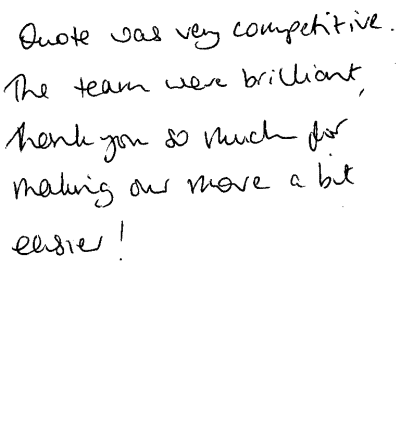 Quote was very competitive.
The team were brilliant,
thank you so much for
making our move a bit
easier!